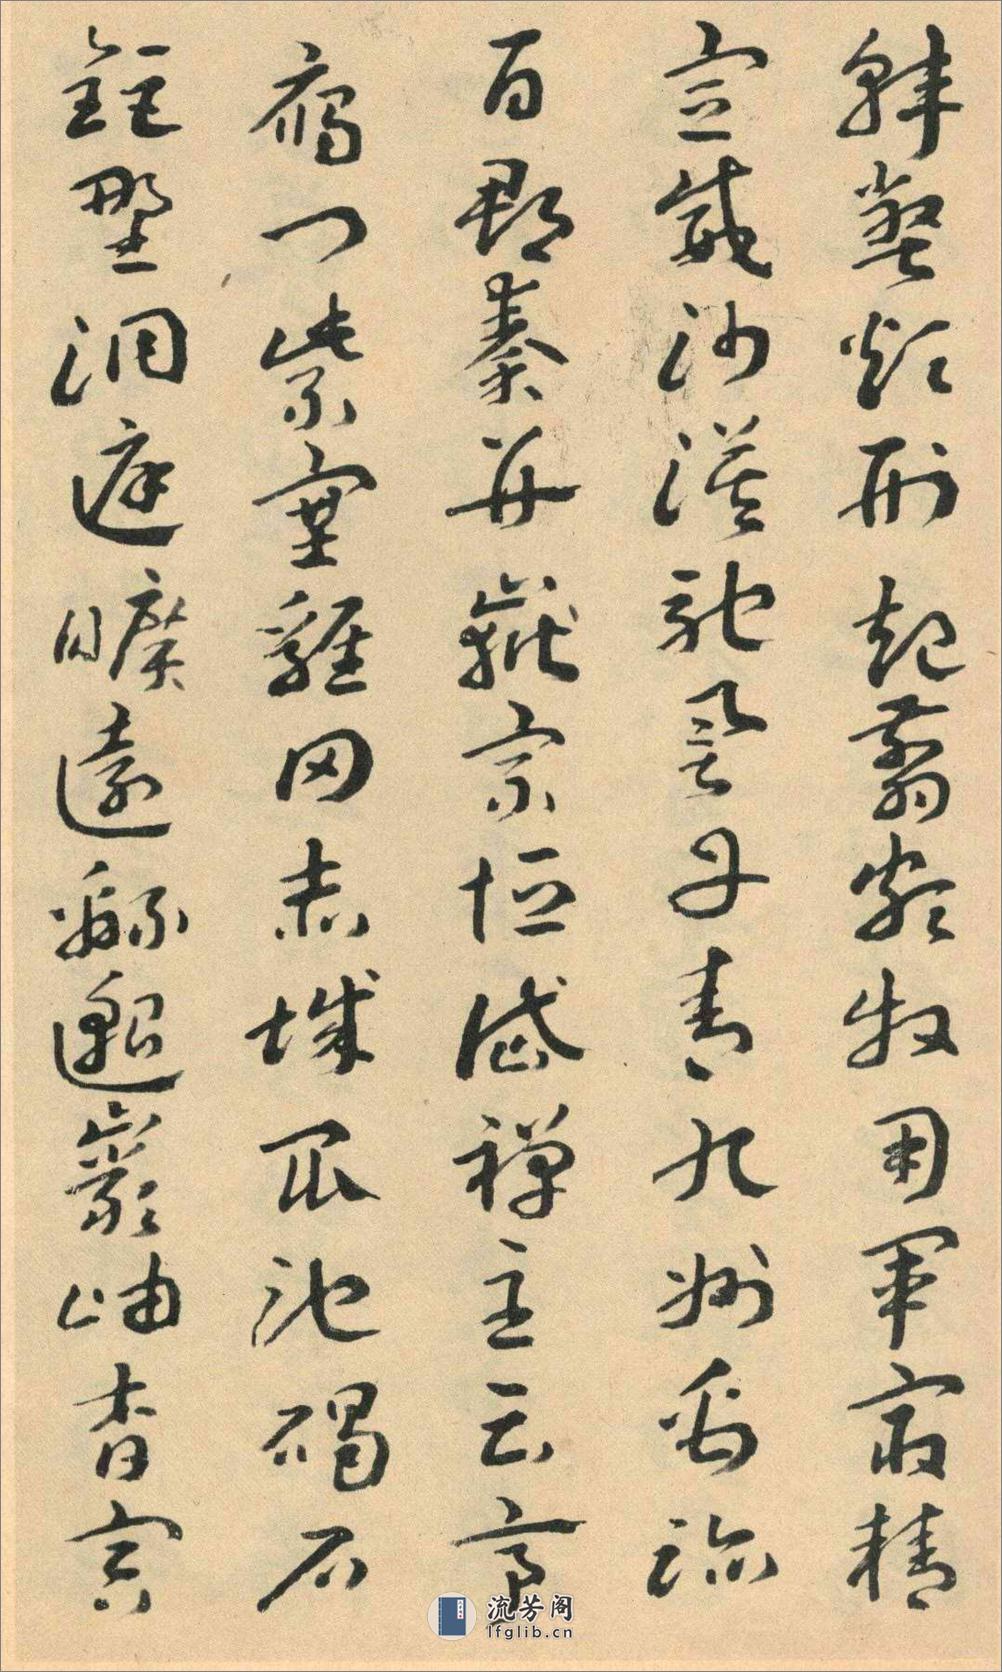 韓弊煩刑起翦頗牧用軍最精
宣威沙漠馳譽丹青九州禹跡
百郡秦并嶽宗恒岱禪主云亭
雁門紫塞雞田赤城昆池碣石
鉅野洞庭曠遠綿邈巖岫杳冥
流芳阁
lfglib.cn